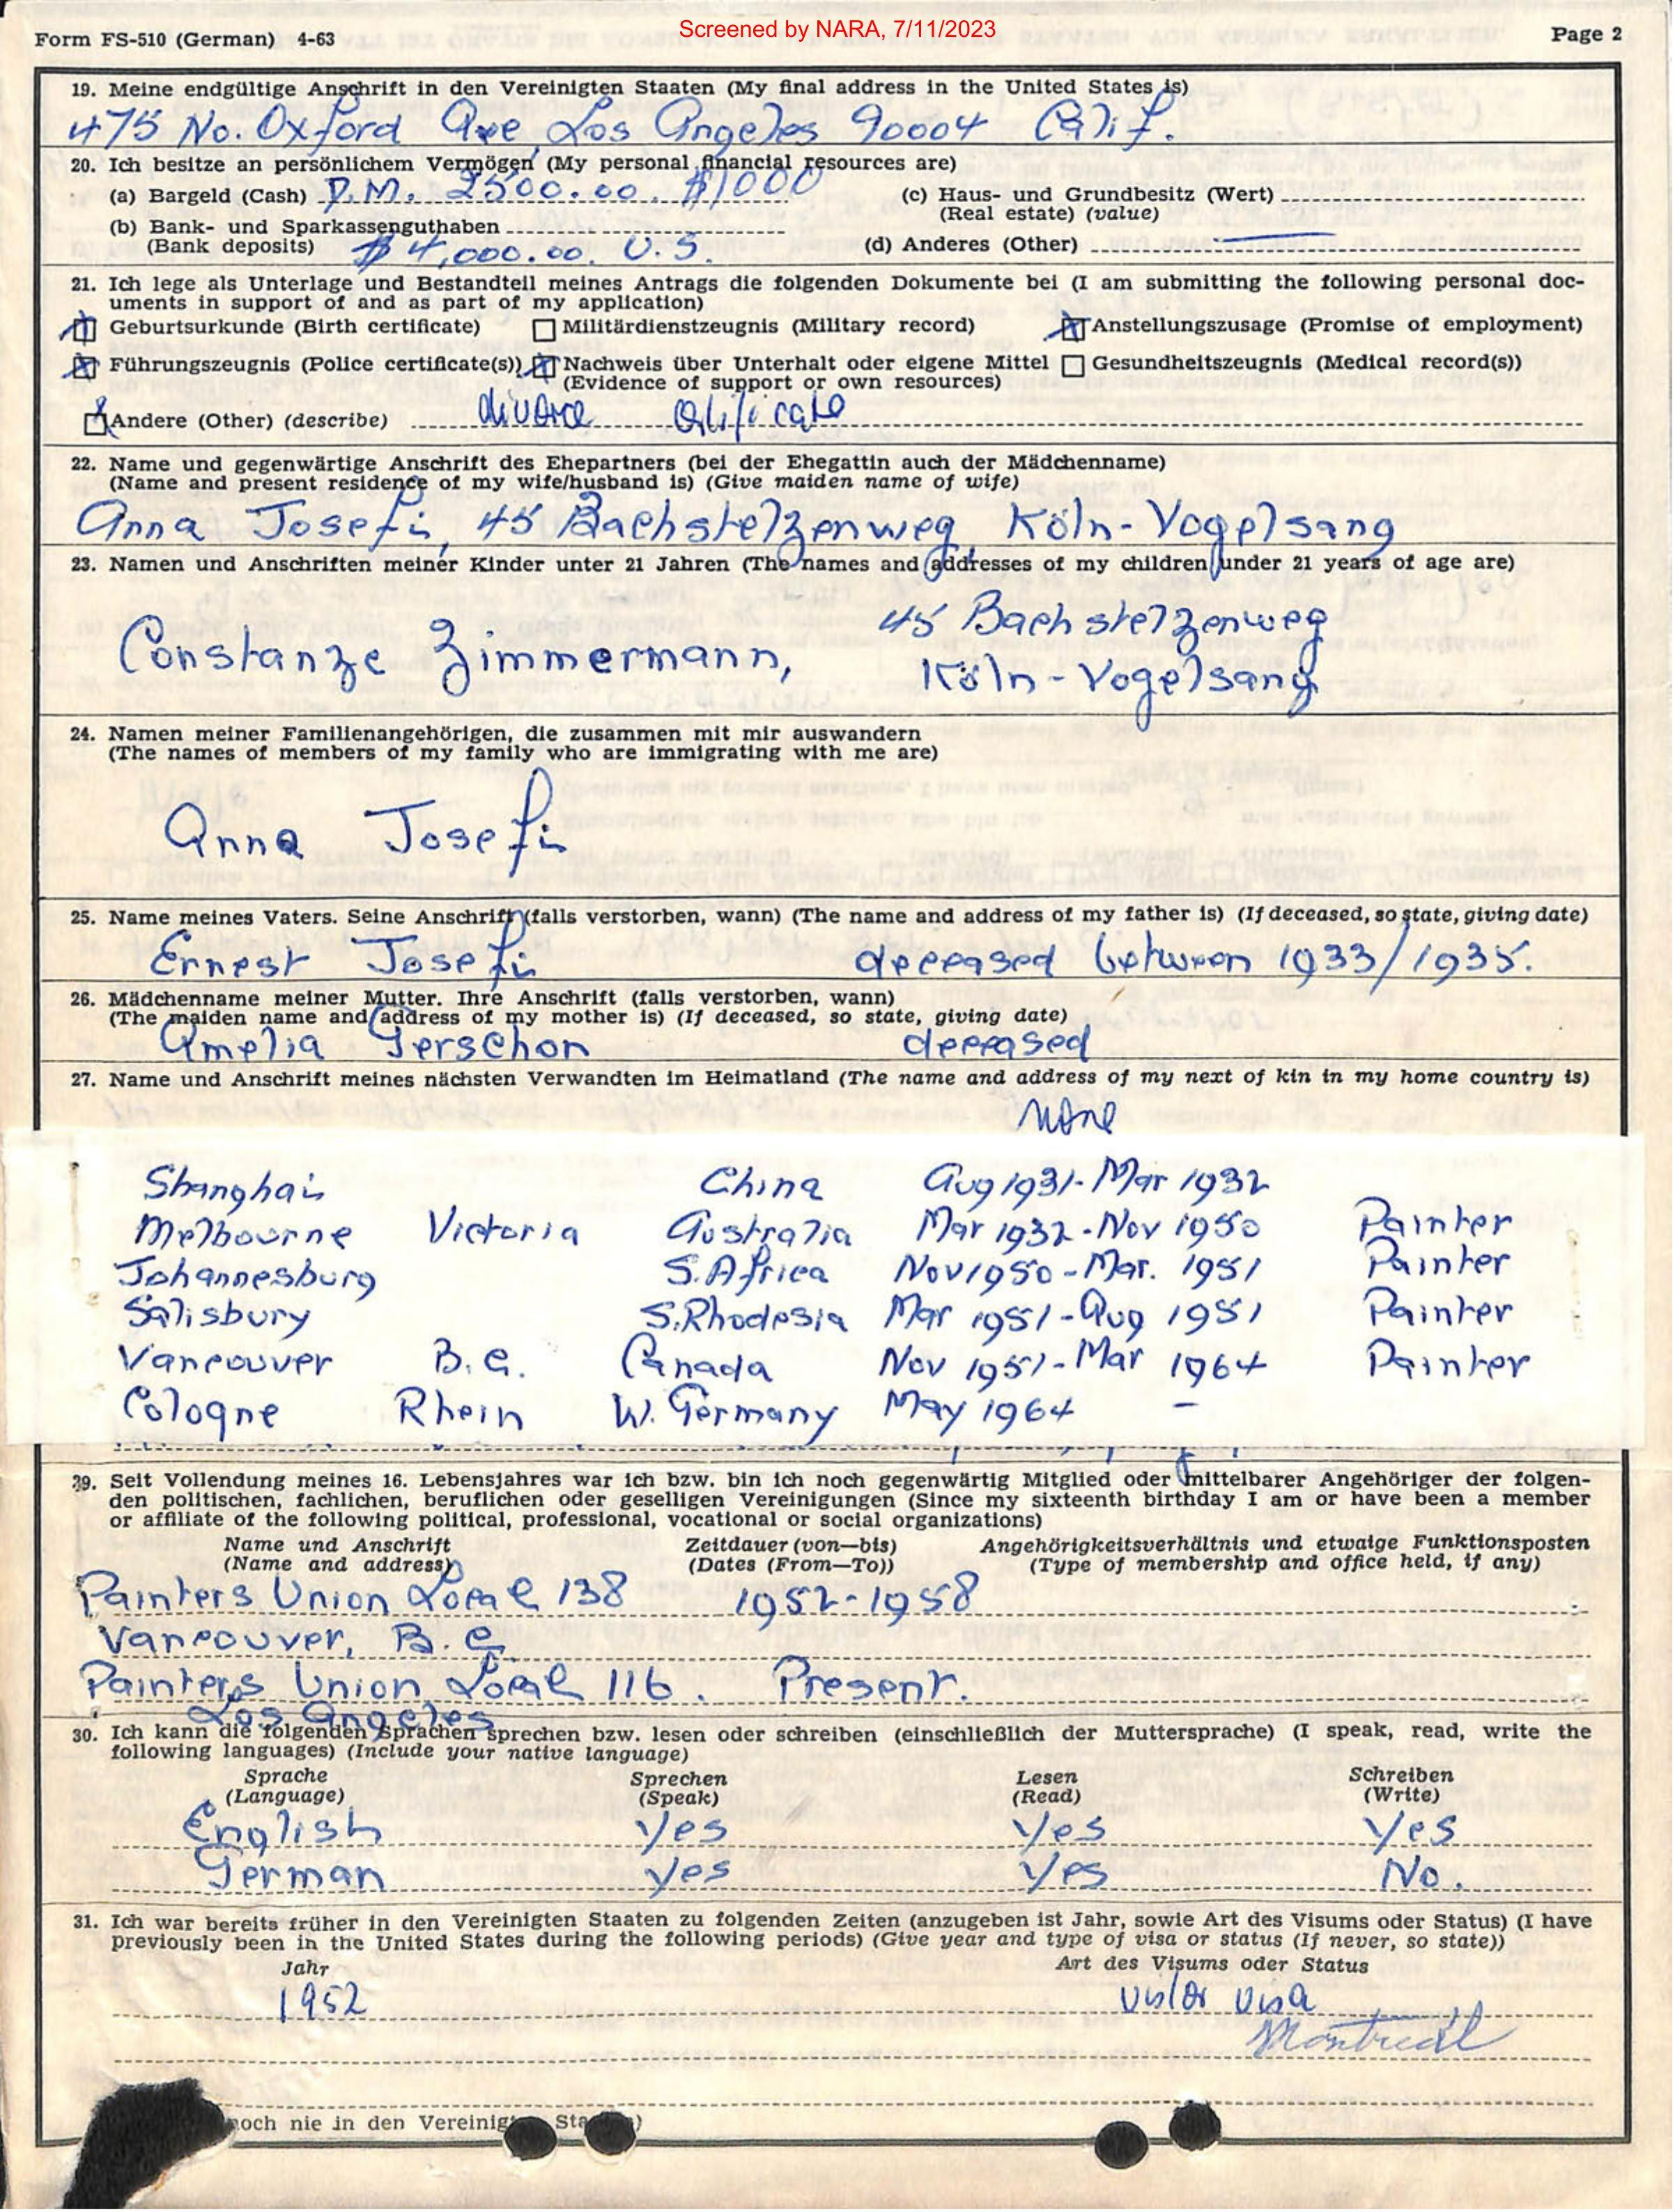 Screened by NARA, 7/11/2023
Form FS-510 (German) 4-63
Page 2
19. Meine endgültige Anschrift in den Vereinigten Staaten (My final address in the United States is)
475 No. Oxford Ave, Los Angeles 90004 Calif.
20. Ich besitze an persönlichem Vermögen (My personal financial resources are)
(a) Bargeld (Cash) D.M. 2500.00. $1000
(c) Haus- und Grundbesitz (Wert)
(Real estate) (value)
(b) Bank- und Sparkassenguthaben
(Bank deposits) $ 4,000.00. U.S.
(d) Anderes (Other)
21. Ich lege als Unterlage und Bestandteil meines Antrags die folgenden Dokumente bei (I am submitting the following personal doc-
uments in support of and as part of my application)
Geburtsurkunde (Birth certificate) Militärdienstzeugnis (Military record) Anstellungszusage (Promise of employment)
Führungszeugnis (Police certificate(s)) Nachweis über Unterhalt oder eigene Mittel Gesundheitszeugnis (Medical record(s))
(Evidence of support or own resources)
Andere (Other) (describe) divorce certificate
22. Name und gegenwärtige Anschrift des Ehepartners (bei der Ehegattin auch der Mädchenname)
(Name and present residence of my wife/husband is) (Give maiden name of wife)
Anna Josefi, 45 Bachstelzenweg, Köln-Vogelsang
23. Namen und Anschriften meiner Kinder unter 21 Jahren (The names and addresses of my children under 21 years of age are)
45 Bachstelzenweg
Constanze Zimmermann,
Köln-Vogelsang
24. Namen meiner Familienangehörigen, die zusammen mit mir auswandern
(The names of members of my family who are immigrating with me are)
Anna Josefi
25. Name meines Vaters. Seine Anschrift (falls verstorben, wann) (The name and address of my father is) (If deceased, so state, giving date)
Ernest Josefi deceased between 1933/1935.
26. Mädchenname meiner Mutter. Ihre Anschrift (falls verstorben, wann)
(The maiden name and address of my mother is) (If deceased, so state, giving date)
Amelia Gerschon deceased
27. Name und Anschrift meines nächsten Verwandten im Heimatland (The name and address of my next of kin in my home country is)
none
Shanghai China Aug 1931-Mar 1932
Melbourne Victoria Australia Mar 1932-Nov 1950 Painter
Johannesburg S.Africa Nov 1950-Mar. 1951 Painter
Salisbury S.Rhodesia Mar 1951-Aug 1951 Painter
Vancouver B.C. Canada Nov 1951-Mar 1964 Painter
Cologne Rhein W. Germany May 1964 -
29. Seit Vollendung meines 16. Lebensjahres war ich bzw. bin ich noch gegenwärtig Mitglied oder mittelbarer Angehöriger der folgen-
den politischen, fachlichen, beruflichen oder geselligen Vereinigungen (Since my sixteenth birthday I am or have been a member
or affiliate of the following political, professional, vocational or social organizations)
Name und Anschrift Zeitdauer (von—bis) Angehörigkeitsverhältnis und etwaige Funktionsposten
(Name and address) (Dates (From—To)) (Type of membership and office held, if any)
Painters Union Local 138 1952-1958
Vancouver, B.C.
Painters Union Local 116. Present.
Los Angeles
30. Ich kann die folgenden Sprachen sprechen bzw. lesen oder schreiben (einschließlich der Muttersprache) (I speak, read, write the
following languages) (Include your native language)
Sprache Sprechen Lesen Schreiben
(Language) (Speak) (Read) (Write)
English Yes Yes Yes
German Yes Yes No.
31. Ich war bereits früher in den Vereinigten Staaten zu folgenden Zeiten (anzugeben ist Jahr, sowie Art des Visums oder Status) (I have
previously been in the United States during the following periods) (Give year and type of visa or status (If never, so state))
Jahr Art des Visums oder Status
1952 visitor visa
Montreal
noch nie in den